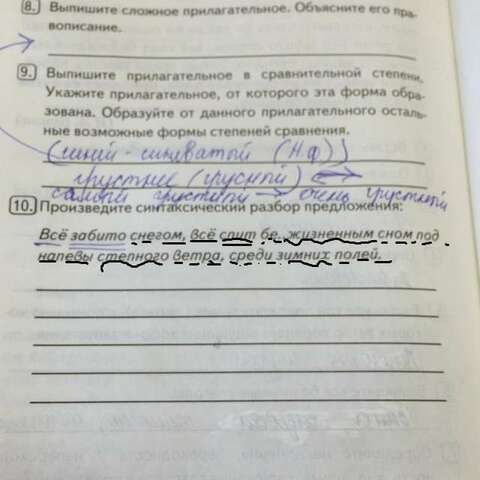 8. Выпишите сложное прилагательное. Объясните его пра-
вописание.
9. Выпишите прилагательное в сравнительной степени.
Укажите прилагательное, от которого эта форма обра-
зована. Образуйте от данного прилагательного осталь-
ные возможные формы степеней сравнения.
(синий - синеватый (Н.ф))
грустнее (грусной)
самый грустный → очень грустный
10. Произведите синтаксический разбор предложения:
Всё забито снегом, всё спит безжизненным сном под
напевы степного ветра, среди зимних полей.